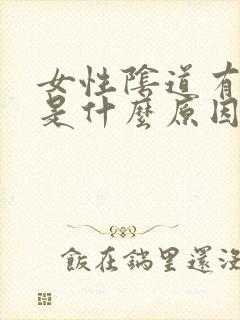 女性陰道有
是什麼原因
飯在鍋里還沒